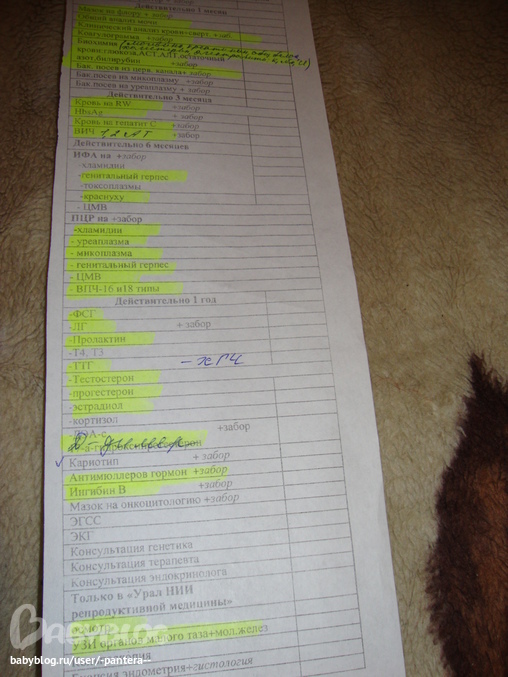 Действительно 1 месяц
Мазок на флору + забор
Общий анализ мочи
Клинический анализ крови+сверт. +заб.
Коагулограмма +забор
Биохимия
крови:глюкоза,АСТ,АЛТ,остаточный
азот,билирубин +забор
Бак. посев из церв. канала+ забор
Бак.посев на микоплазму +забор
Бак.посев на уреаплазму + забор
Действительно 3 месяца
Кровь на RW +забор
HbsAg + забор
Кровь на гепатит С +забор
ВИЧ 1,2 +АТ +забор
Действительно 6 месяцев
ИФА на +забор
-хламидии
-генитальный герпес
-токсоплазмы
-краснуху
- ЦМВ
ПЦР на +забор
-хламидии
- уреаплазма
- микоплазма
- генитальный герпес
- ЦМВ
- ВПЧ-16 и18 типы
Действительно 1 год
-ФСГ
-ЛГ + забор
-Пролактин
-Т4, Т3
-ТТГ – ХГЧ
-Тестостерон
-прогестерон
-эстрадиол
-кортизол
+забор
✓ Кариотип + забор
Антимюллеров гормон +забор
Ингибин В +забор
Мазок на онкоцитологию +забор
ЭГСС
ЭКГ
Консультация генетика
Консультация терапевта
Консультация эндокринолога
Только в «Урал НИИ
репродуктивной медицины»
осмотр
УЗИ органов малого таза+мол.желез
Биопсия эндометрия+гистология
BABYBLOG
babyblog.ru/user/-pantera--